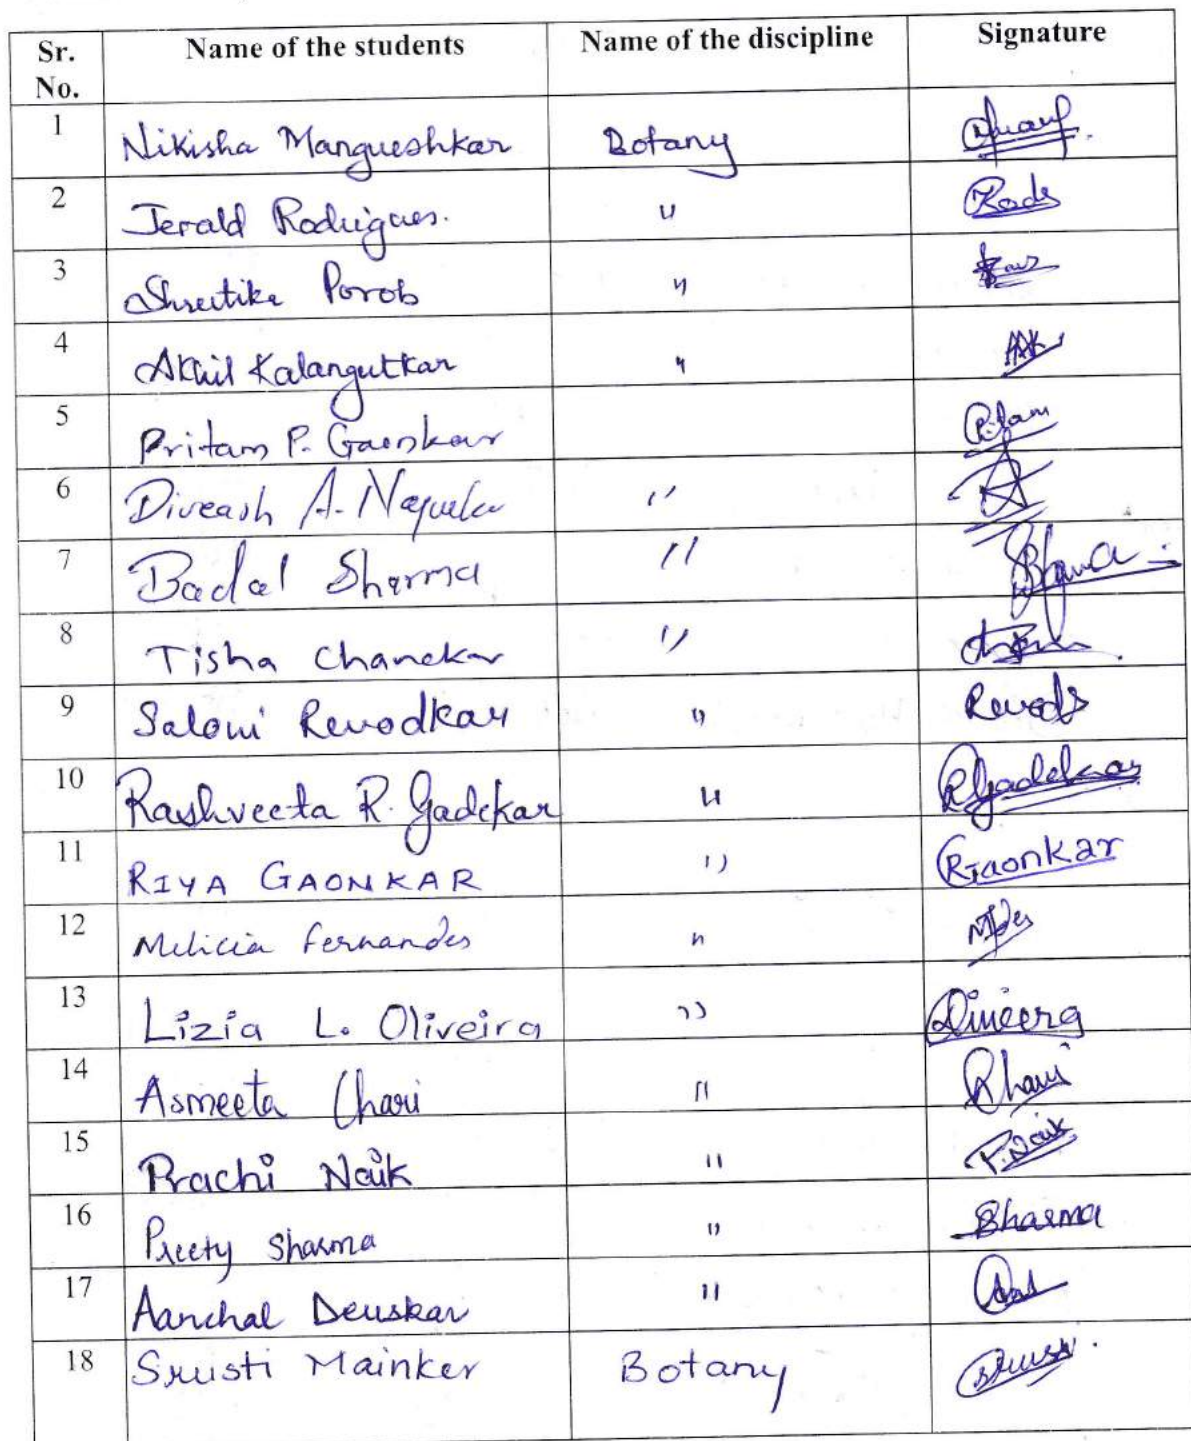 Sr. No. Name of the students Name of the discipline Signature
1 Nikisha Mangueshkar Botany
2 Jerald Rodrigues. "
3 Shrutika Porob "
4 Akhil Kalangutkar "
5 Pritam P. Gaonkar
6 Diveash A. "
7 Badal Sharma "
8 Tisha Chanekar "
9 Saloni Revodkar "
10 Rashveeta R. Gadekar " RGadekar
11 RIYA GAONKAR " RGaonkar
12 Melicia Fernandes "
13 Lizia L. Oliveira "
14 Asmeeta Chari "
15 Prachi Naik " P. Naik
16 Preety Sharma " Sharma
17 Aanchal Deuskar "
18 Srusti Mainker Botany